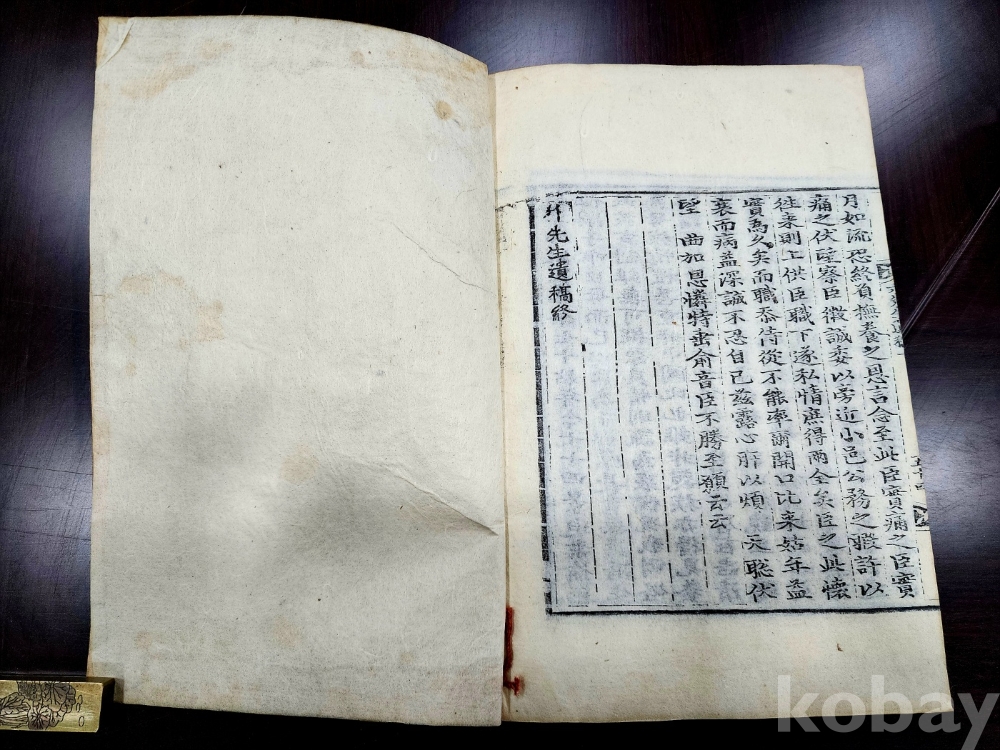 月如流恐終負撫養之恩言念至此臣實痛之臣實
痛之伏望察臣微誠委以旁近小邑公務之暇許以
徃來則上供臣職下遂私情庶得兩全矣臣之此懷
實爲久矣而職忝侍從不能率爾開口比来姑年益
衰而病益深誠不忍自已玆露心肝以煩 天聡伏
望 曲加恩憐特垂俞音臣不勝至願云云
先生遺稿終
kobay